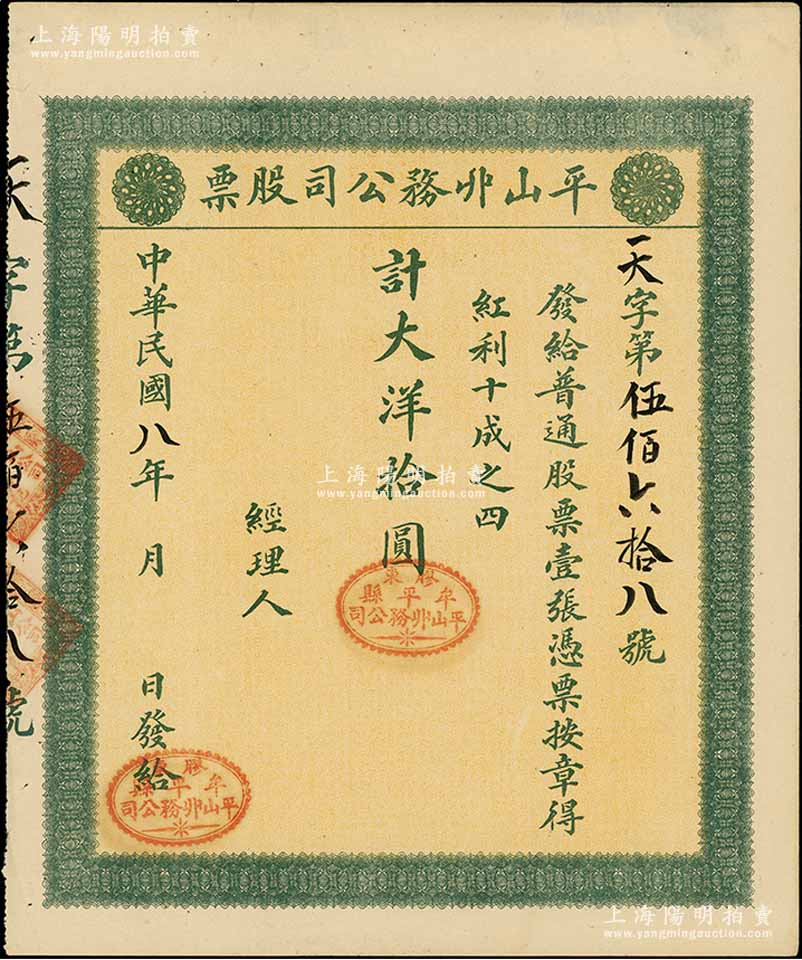 上海陽明拍賣
www.yangmingauction.com
平山丱務公司股票
天字第伍佰六拾八號
發給普通股票壹張憑票按章得
紅利十成之四
計大洋拾圓
經理人
中華民國八年 月 日發給
膠東
牟平縣
平山丱務公司
膠東
牟平縣
平山丱務公司
天字第伍佰六拾八號
上海陽明拍賣
www.yangmingauction.com
上海陽明拍賣
www.yangmingauction.com